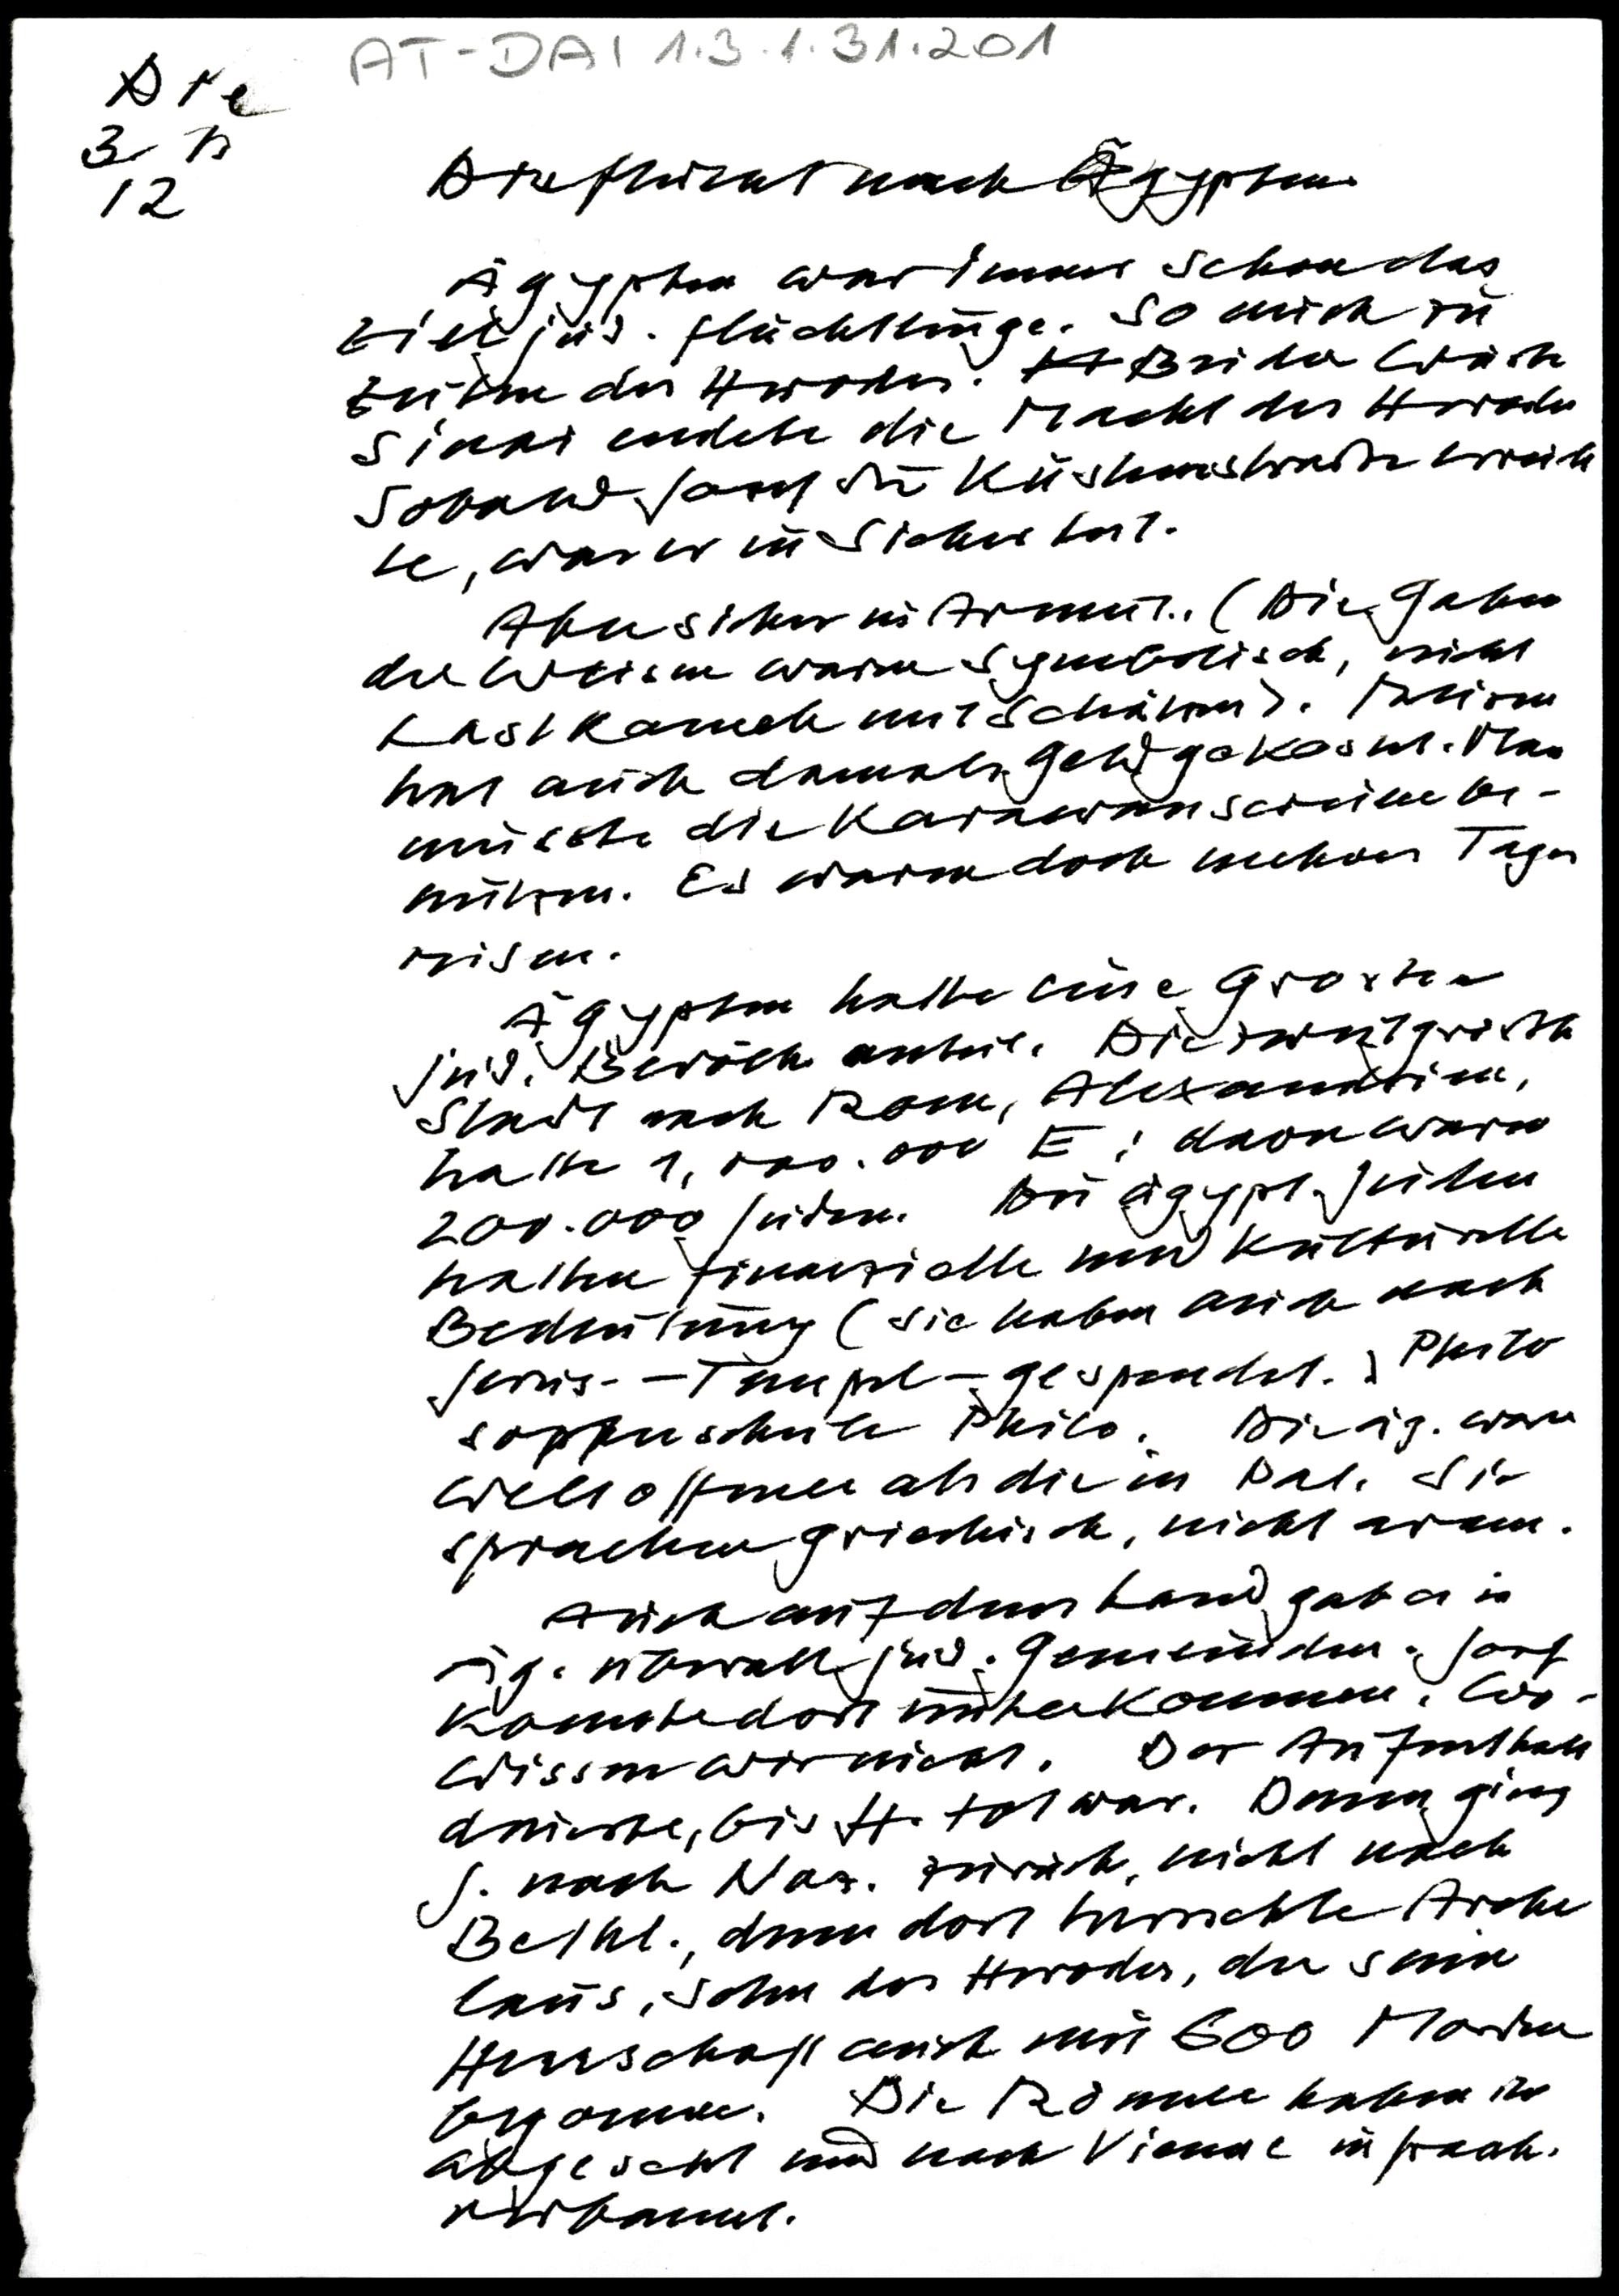 AT-DAI 1.3.1.31.201
3
12
Die Flucht nach Ägypten
Ägypten war immer schon das
Ziel jüd. Flüchtlinge. So auch zu
Zeiten des Herodes. Bei der Wüste
Sinai endete die Macht des Herodes
Sobald Josef die Küstenstraße erreich
te, war er in Sicherheit.
Aber sicher in Armut. (Die Gaben
der Weisen waren symbolisch, nicht
Lastkamele mit Schätzen). Reisen
hat auch damals Geld gekostet. Man
mußte die Karawansereien be-
nützen. Es waren doch mehrere Tages
reisen.
Ägypten hatte einen grossen
jüd. Bevölk. anteil. Die zweitgrösste
Stadt nach Rom, Alexandrien,
hatte 1,000.000 E; davon waren
200.000 Juden. Die ägypt. Juden
hatten finanzielle und kulturelle
Bedeutung (sie haben auch nach
Jerus. - Tempel - gespendet.) Philo
sophenschule Philo. Die äg. waren
weltoffener als die in Pal. Sie
sprachen griechisch, nicht aram.
Auch auf dem Land gab es in
Äg. überall jüd. Gemeinden. Josef
konnte dort unterkommen. Wo -
wissen wir nicht. Der Aufenthalt
dauerte, bis H. tot war. Dann ging
J. nach Naz. zurück, nicht nach
Bethl., denn dort herrschte Arche
laus, Sohn des Herodes, der seine
Herrschaft auch mit 600 Morden
begonnen. Die Römer haben ihn
abgesetzt und nach Vienne in Frank.
verbannt.